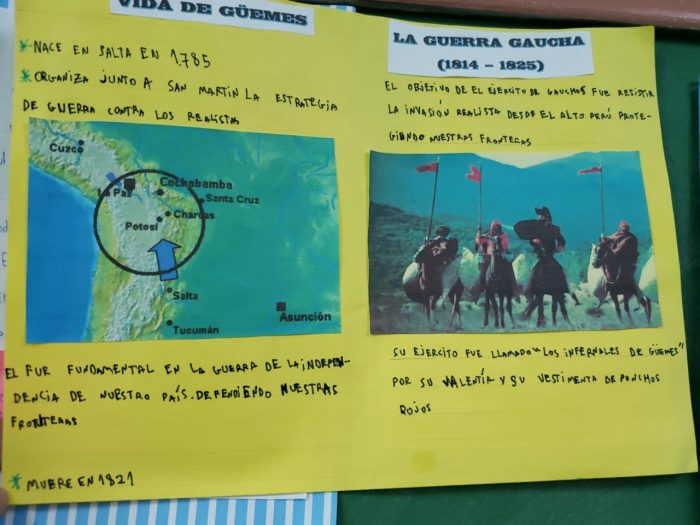 VIDA DE GÜEMES
* NACE EN SALTA EN 1785
* ORGANIZA JUNTO A SAN MARTIN LA ESTRATEGIA
DE GUERRA CONTRA LOS REALISTAS
Cuzco
La Paz
Cochabamba
Santa Cruz
Charcas
Potosí
Salta
Asunción
Tucumán
EL FUE FUNDAMENTAL EN LA GUERRA DE LA INDEPEN-
DENCIA DE NUESTRO PAÍS. DEFENDIENDO NUESTRAS
FRONTERAS
* MUERE EN 1821
LA GUERRA GAUCHA
(1814 – 1825)
EL OBJETIVO DE EL EJERCITO DE GAUCHOS FUE RESISTIR
LA INVASIÓN REALISTA DESDE EL ALTO PERÚ PROTE-
GIENDO NUESTRAS FRONTERAS
SU EJERCITO FUE LLAMADO "LOS INFERNALES DE GÜEMES"
POR SU VALENTÍA Y SU VESTIMENTA DE PONCHOS
ROJOS